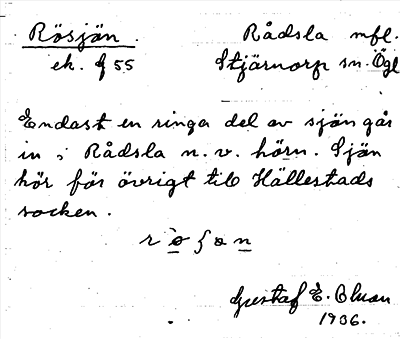 Rösjön. Rådsla mfl.
ek. f 55 Stjärnorp sn. Ögl
Endast en ringa del av sjön går
in i Rådsla n. v. hörn. Sjön
hör för övrigt till Hällestads
socken.
Gustaf E. Bluan
1936.